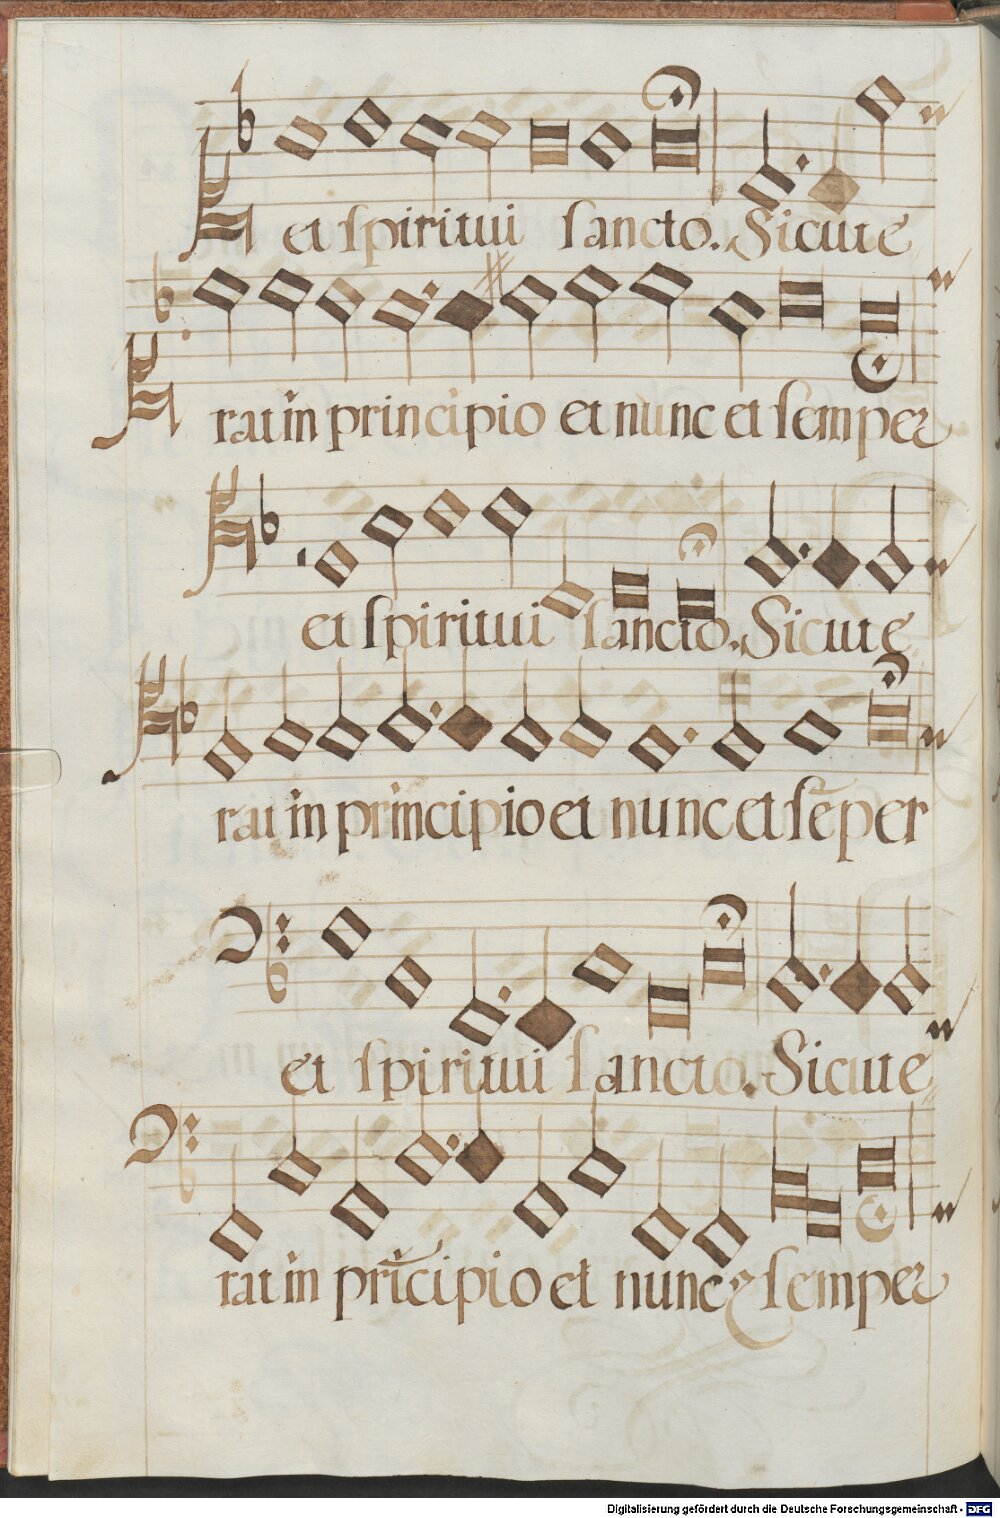 et spiritui sancto. Sicut e
rat in principio et nunc et semper
et spiritui sancto. Sicut e
rat in principio et nunc et sēper
et spiritui sancto. Sicut e
rat in prīcipio et nunc & semper
Digitalisierung gefördert durch die Deutsche Forschungsgemeinschaft - DFG